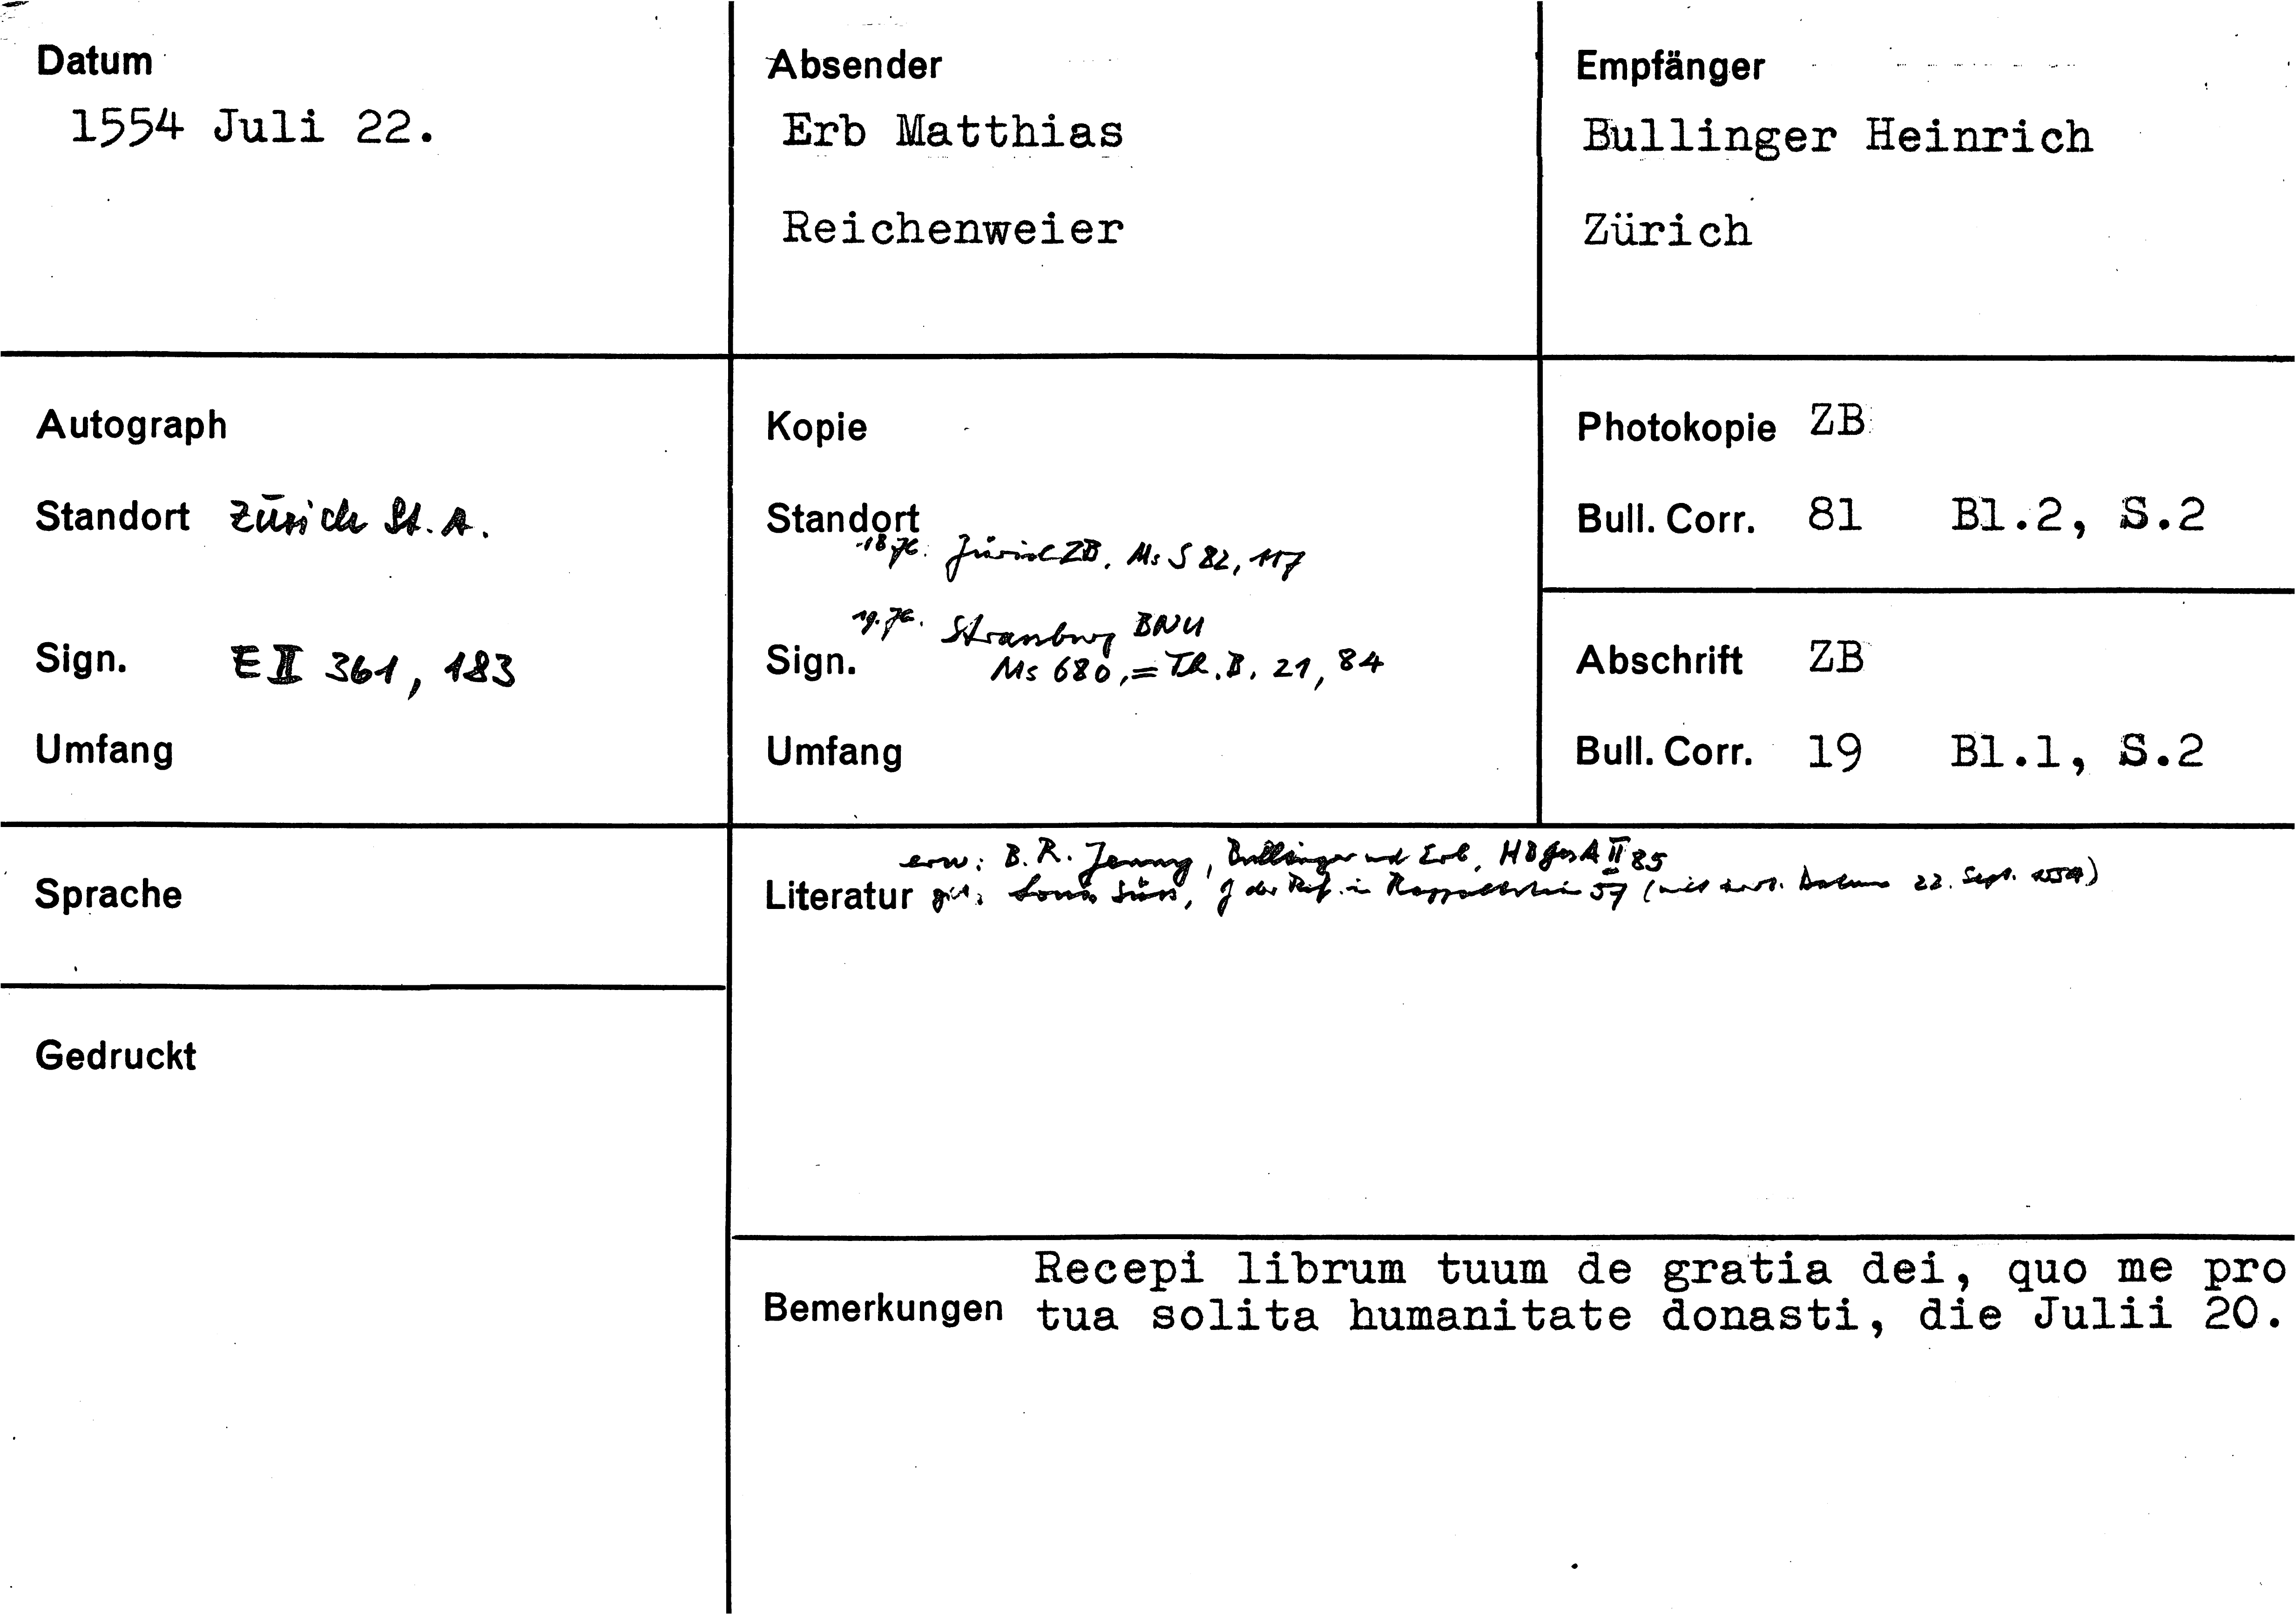 Datum
1554 Juli 22.
Absender
Erb Matthias
Reichenweier
Empfänger
Bullinger Heinrich
Zürich
Autograph
Standort Zürich St. A.
Sign. E II 361, 183
Umfang
Kopie
Standort
18. Jh. Zürich ZB, Ms S 82, 117
19. Jh. Strassburg BNU
Sign. Ms 680, = Th. B. 21, 84
Umfang
Photokopie ZB
Bull. Corr. 81 Bl.2, S.2
Abschrift ZB
Bull. Corr. 19 Bl.1, S.2
Sprache
Gedruckt
erw: B. R. Jenny, Bullinger und Erb, HBGesA II 85
Literatur Louis Süss, der Ref. in Rappoltstein 57 (mit Datum 22. Sept. 1554)
Bemerkungen
Recepi librum tuum de gratia dei, quo me pro
tua solita humanitate donasti, die Julii 20.